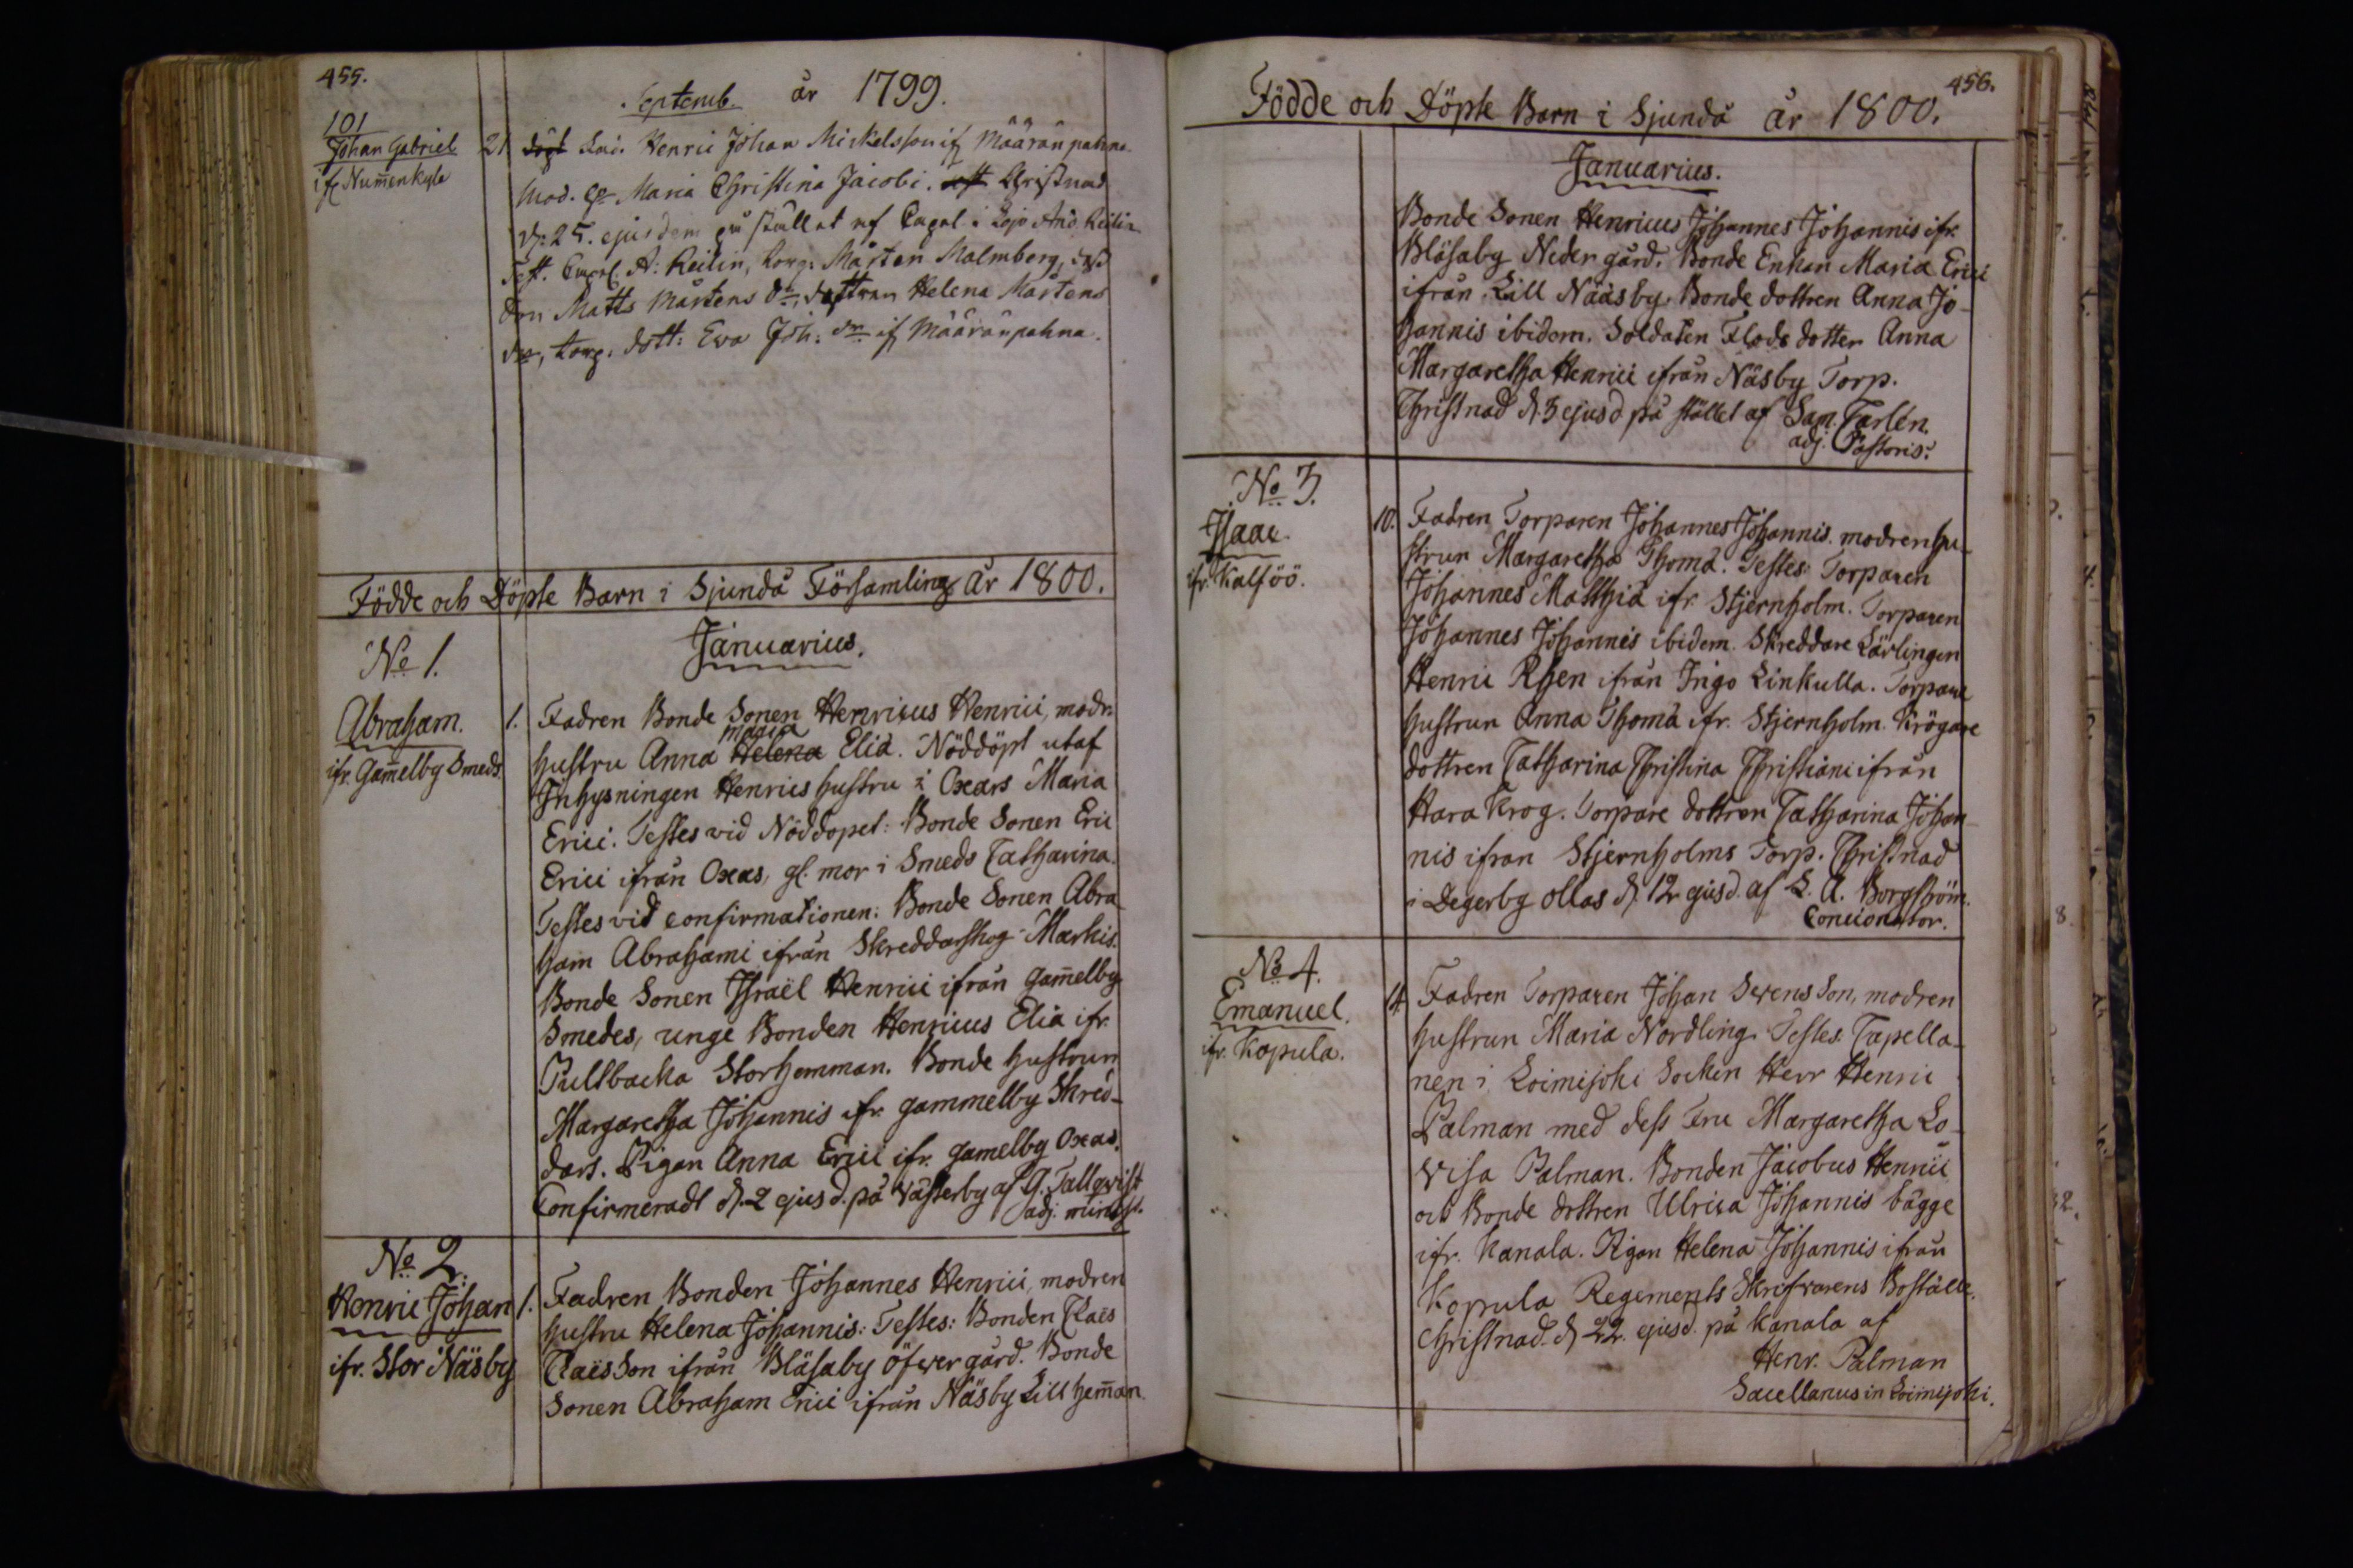 455.
Septemb. år 1799.
101
Johan Gabriel
if Num̃enkyle
21 Henric Johan Mickelsson if Määränpahna
Mod. Maria Christina Jacobi. Christnad
d: 25. ejusdem på stället af Capel. i Lojo And. Reilin
Test. Capel. A: Reilin, Torp: Mårten Malmberg,
Matts Mårtens dottran Helena Mårtens
Torp. dott: Ewa Joh: if Määränpahna.
Födde och Döpte Barn i Sjundå Församling År 1800.
Januarius.
No 1.
Abraham.
ifr. Gam̃elby Smeds
1. Fadren Bonde Sonen Henricus Henrici, modr.
hustru Anna Helena Maria Eliæ. Nöddöpt utaf
Inhysningen Henrics hustru i Oxars Maria
Erici. Testes vid Nöddopet: Bonde Sonen Eric
Erici ifrån Oxas, gl. mor i Smeds Catharina.
Testes vid confirmationen: Bonde Sonen Abra-
ham Abrahami ifrån Skreddarskog Markis.
Bonde Sonen Israël Henrici ifrån gam̃elby
Smedes, unge Bonden Henricus Eliæ ifr.
Pultbacka Storhemman. Bonde hustrun
Margaretha Johannis ifr. gammelby Skred-
dars. Pigan Anna Erici ifr. gamelby Oxas.
Confirmeradt d. 2 ejusd. på Västerby af G. Tallqvist
adj. minist.
No 2.
Henric Johan
ifr. Stor Näsby
1. Fadren Bonden Johannes Henrici, modren
hustru Helena Johannis: Testes: Bonden Claës
Claësson ifrån Bläsaby öfwergård. Bonde
Sonen Abraham Erici ifrån Näsby Lillhem̃an.
456.
Födde och Döpte Barn i Sjundå År 1800.
Januarius.
Bonde Sonen Henricus Johannes Johannis ifr.
Bläsaby Nedergård. Bonde Enkan Maria Erici
ifrån Lill Nääsby. Bonde dottren Anna Jo-
hannis ibidem. Soldaten Flods dotter Anna
Margaretha Henrici ifrån Näsby Torp.
Christnad d. 3 ejusd på stället af Sam. Carlén.
adj. Pastoris.
No 3.
Isaac.
ifr. Kalföö.
10. Fadren Torparen Johannes Johannis. modren hu-
strun Margaretha Thomæ. Testes: Torparen
Johannes Matthiæ ifr. Stjernholm. Torparen
Johannes Johannis ibidem. Skreddare Lärlingen
Henric Rhen ifrån Ingo Linkulla. Torpare
hustrun Anna Thomæ ifr. Stjernholm. Krögare
dottren Catharina Christina Christiani ifrån
Hara Krog. Torpare dottren Catharina Johan-
nis ifran Stjernholms Torp. Christnad
i Degerby ollas d. 12 ejusd. af L. A. Borgström.
Concionator.
No 4.
Emanuel.
ifr. Kopula.
14. Fadren Torparen Johan Svens Son, modren
hustrun Maria Nordling. Testes: Capella-
nen i Loimijoki Socken Herr Henric
Palman med dess Fru Margaretha Lo-
visa Palman. Bonden Jacobus Henrici
och Bonde dottren Ulrica Johannis bägge
ifr. Kanala. Pigan Helena Johannis ifrån
Kopula Regements Skrifvarens Boställe.
Christnad d. 22. ejusd. på Kanala af
Henr. Palman
Sacellanus in Loimijoki.